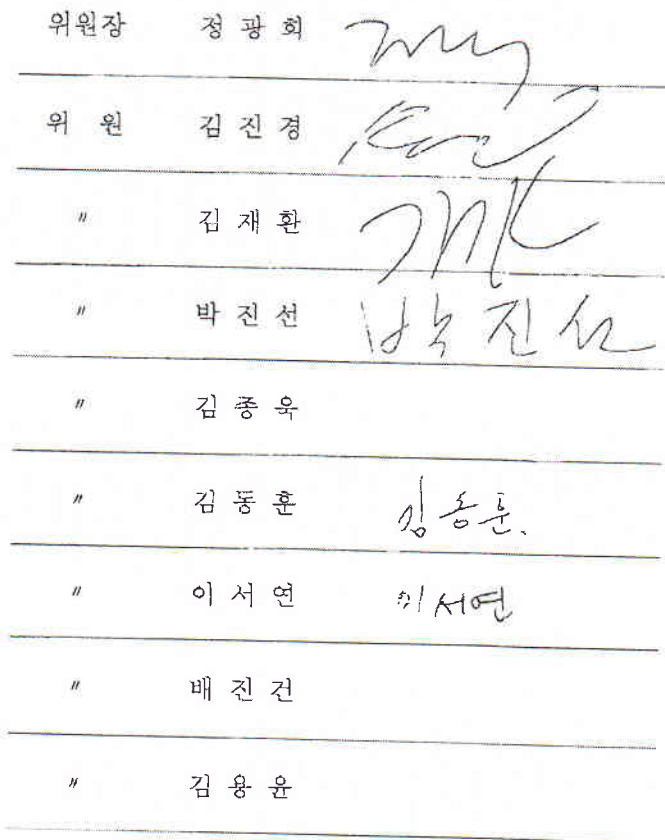 위원장 정광회
위 원 김진경
〃 김재환
〃 박진선 박진선
〃 김종욱
〃 김동훈 김동훈.
〃 이서연 이서연
〃 배진건
〃 김용윤